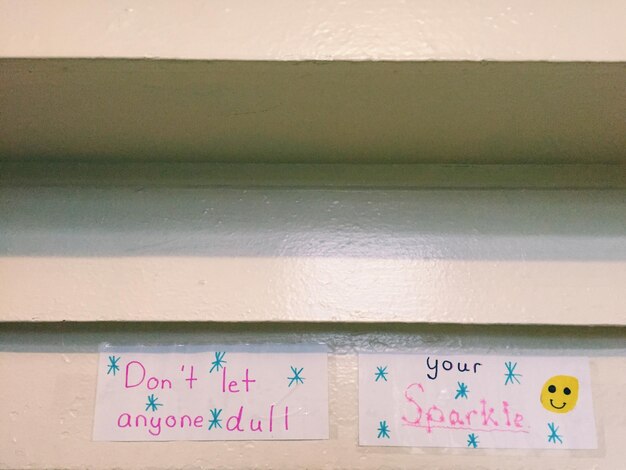 Don't let
anyone dull
your
Sparkle